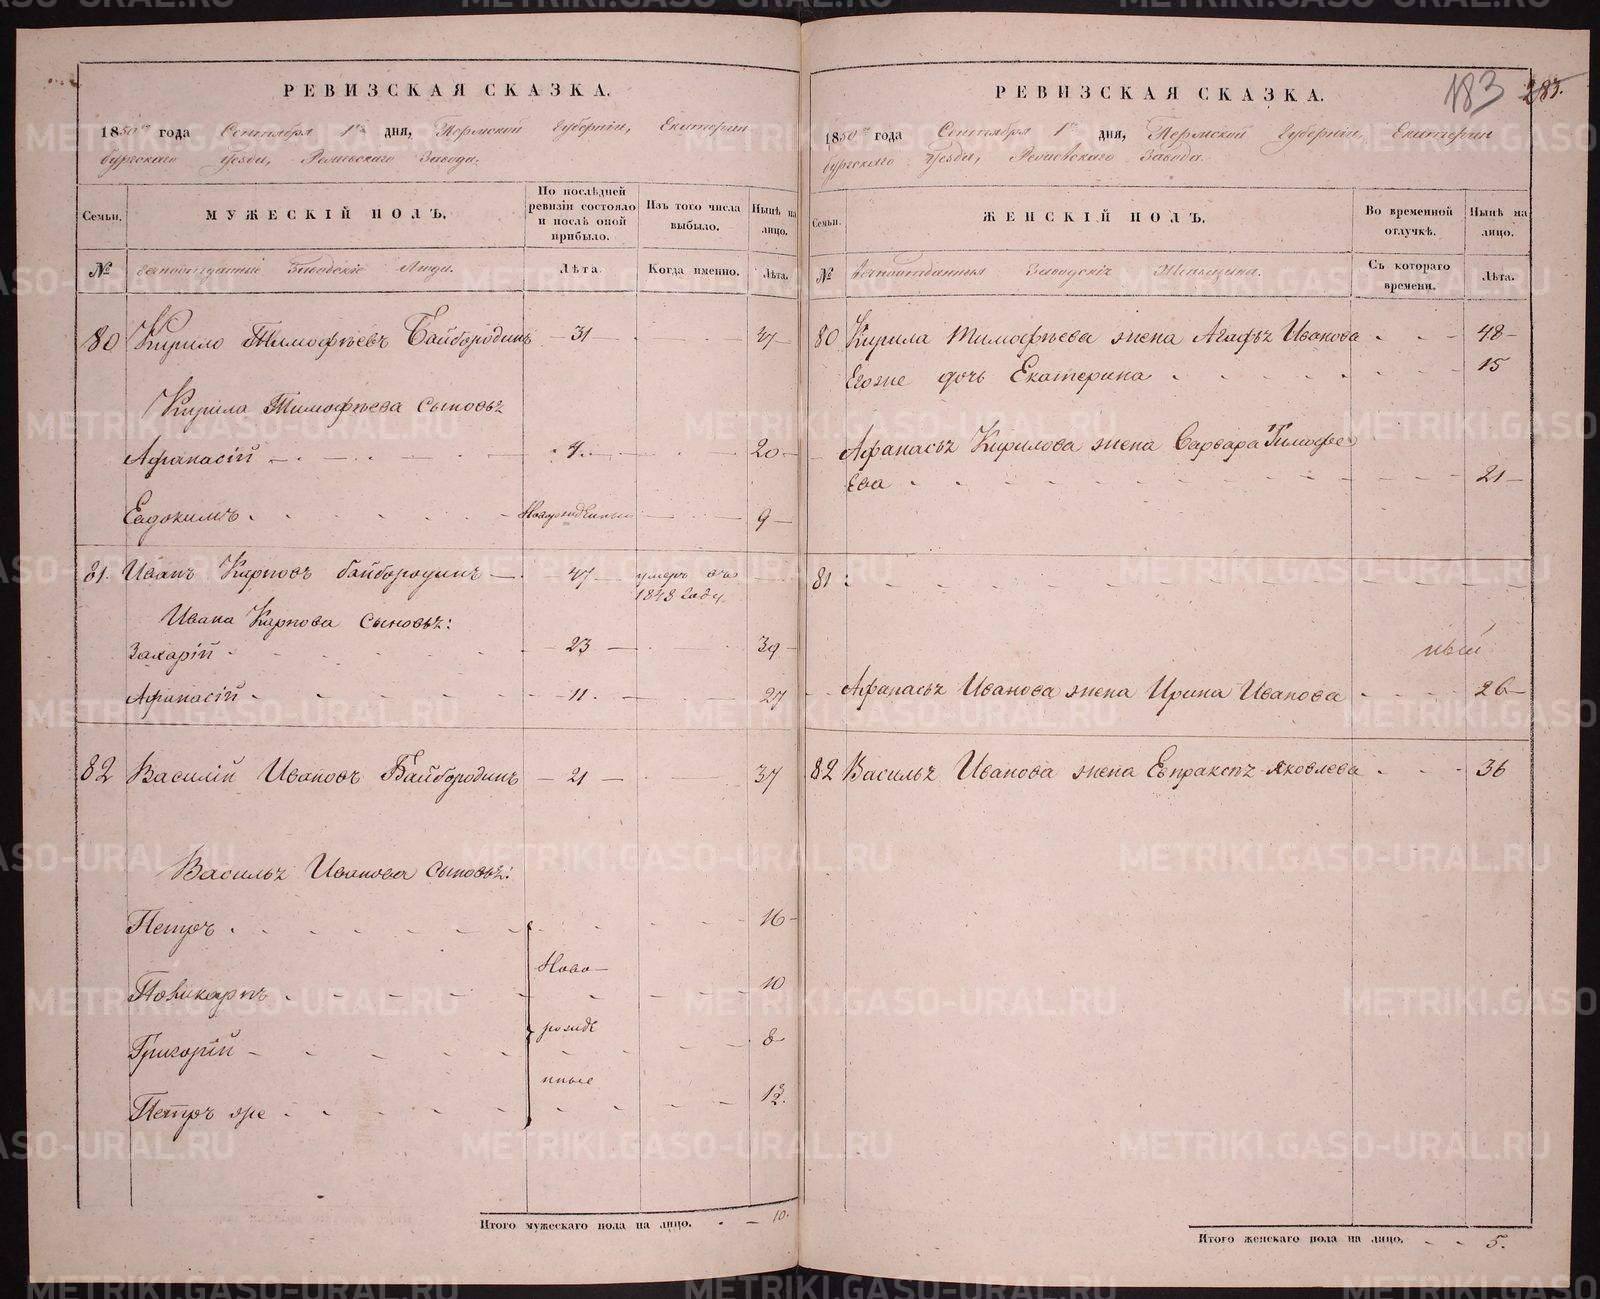 РЕВИЗСКАЯ СКАЗКА.
1850го года Сентября 1го дня, Пермской Губернiи, Екатерин
бургскаго Уезда, Ревдѣнскаго Завода.
Семьи.
МУЖЕСКIЙ ПОЛЪ.
По послѣдней
ревизiи состояло
и послѣ оной
прибыло.
Изъ того числа
выбыло.
Нынѣ на
лицо.
№
вечноотданные Заводскiе Люди.
Лѣта.
Когда именно.
Лѣта.
80 Кирило Тимофѣевъ Байбородинъ 31 47
Кирила Тимофѣева сыновья
Афанасiй 4. 20
Евдокимъ Новорожденный 9
81. Иванъ Карповъ Байбородинъ 47 умеръ въ
1843 году
Ивана Карпова сыновья:
Захарiй 23 39
Афанасiй 11. 27
82 Василiй Ивановъ Байбородинъ 21 37
Василья Иванова сыновья:
Петръ 16
Ново
Поликарпъ 10
рожде
Григорiй 8
нные
Петръ же 1½.
Итого мужескаго пола на лицо. 10.
183 283.
РЕВИЗСКАЯ СКАЗКА.
1850го года Сентября 1го дня, Пермской Губернiи, Екатерин
бургскаго Уезда, Завода.
Семьи.
ЖЕНСКIЙ ПОЛЪ.
Во временной
отлучкѣ.
Нынѣ на
лицо.
№
вечноотданныя Заводскiя Женщины.
Съ котораго
времени.
Лѣта.
80 Кирила Тимофѣева жена Агафья Иванова 48
Егоже дочь Екатерина 15
Афанасья Кирилова жена Варвара Тимофѣ
ева 21
81
ный
Афанасья Иванова жена Ирина Иванова 26
82 Василья Иванова жена Евпраксья Яковлева 36
Итого женскаго пола на лицо. 5.
METRIKI.GASO-URAL.RU